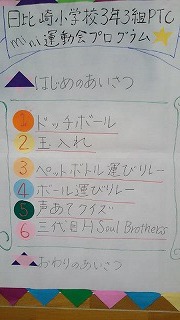 日比崎小学校3年3組PTC
mini運動会プログラム
はじめのあいさつ
1 ドッチボール
2 玉入れ
3 ペットボトル運びリレー
4 ボール運びリレー
5 声あてクイズ
6 三代目H Soul Brothers
おわりのあいさつ